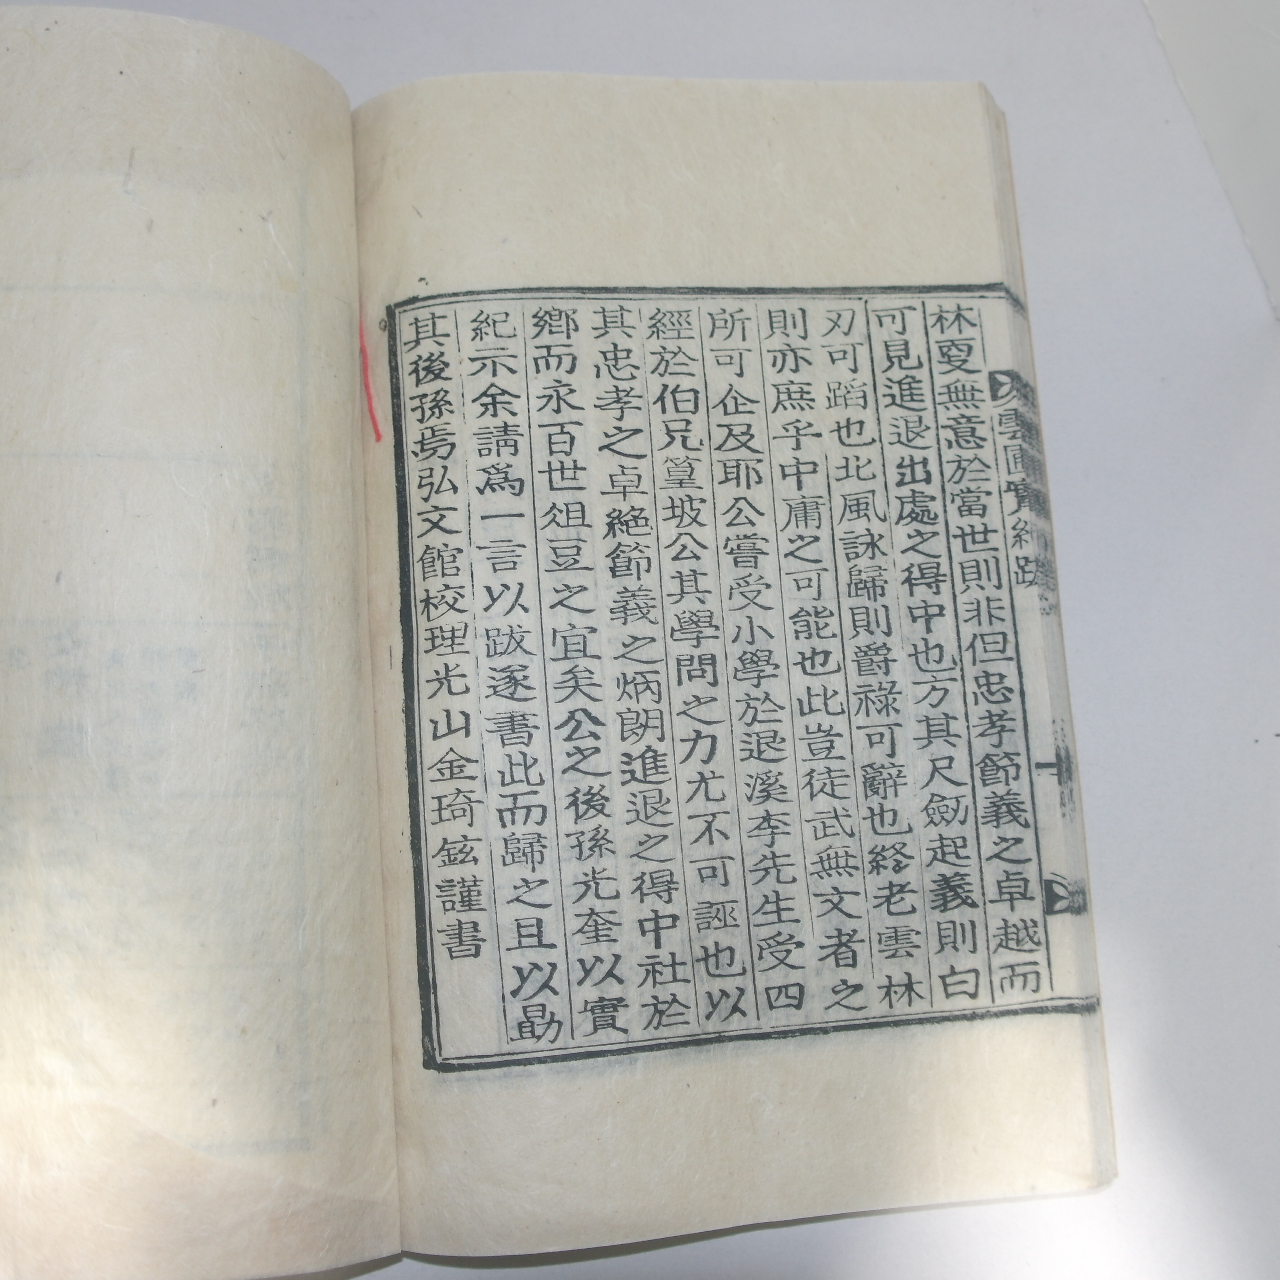 雲圃實紀跋
林更無意於當世則非但忠孝節義之卓越而
可見進退出處之得中也方其尺劒起義則白
刃可蹈也北風詠歸則爵祿可辭也終老雲林
則亦庶乎中庸之可能也此豈徒武無文者之
所可企及耶公嘗受小學於退溪李先生受四
經於伯兄篁坡公其學問之力尤不可誣也以
其忠孝之卓絶節義之炳朗進退之得中社於
鄕而永百世俎豆之宜矣公之後孫光奎以實
紀示余請爲一言以跋逐書此而歸之且以勖
其後孫焉弘文館校理光山金琦鉉謹書